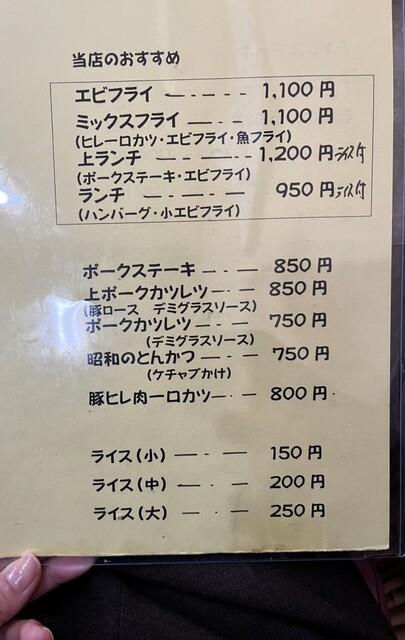 当店のおすすめ
エビフライ 1,100円
ミックスフライ 1,100円
(ヒレーロカツ・エビフライ・魚フライ)
上ランチ 1,200円 ライス付
(ポークステーキ・エビフライ)
ランチ 950円 ライス付
(ハンバーグ・小エビフライ)
ポークステーキ 850円
上ポークカツレツ 850円
(豚ロース デミグラスソース)
ポークカツレツ 750円
(デミグラスソース)
昭和のとんかつ 750円
(ケチャプかけ)
豚ヒレ肉一口カツ 800円
ライス(小) 150円
ライス(中) 200円
ライス(大) 250円